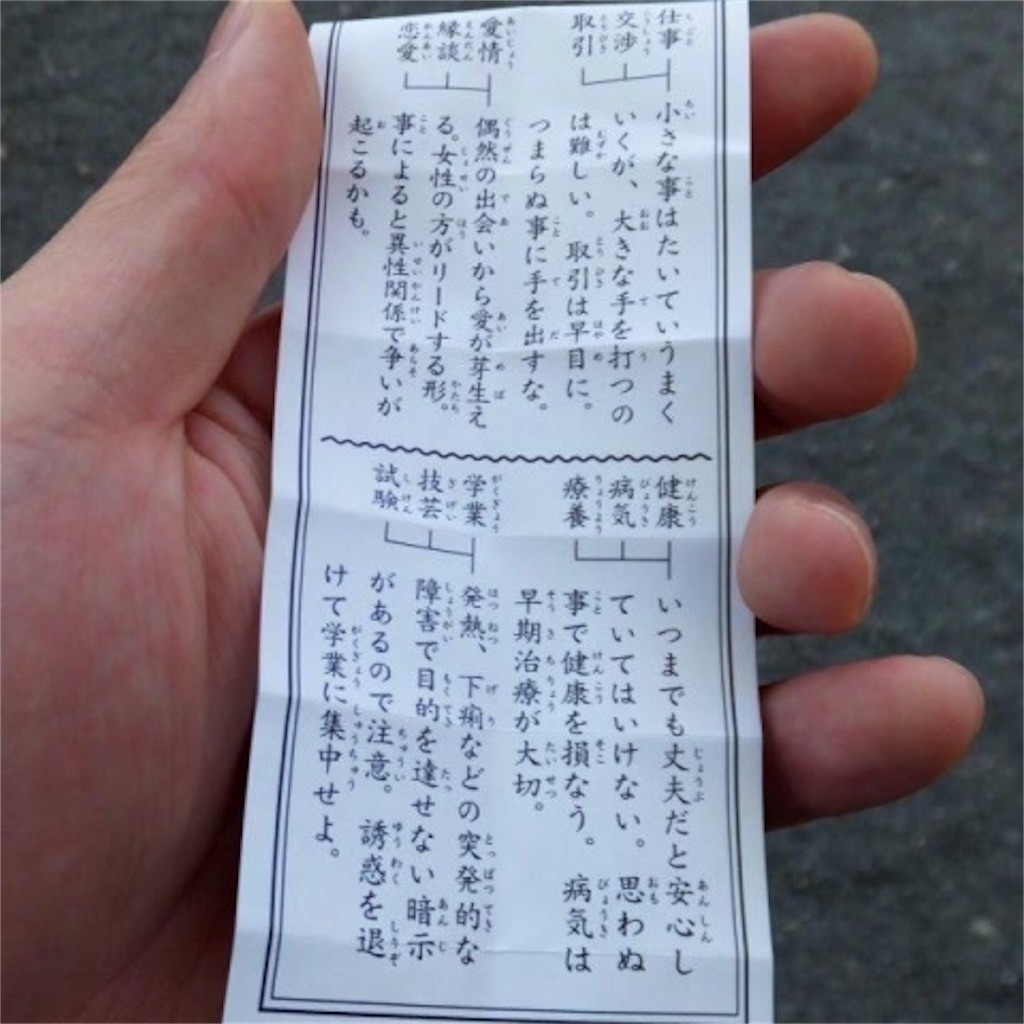 仕事
交渉
取引
小さな事はたいていうまく
いくが、大きな手を打つの
は難しい。取引は早目に。
つまらぬ事に手を出すな。
愛情
縁談
恋愛
偶然の出会いから愛が芽生え
る。女性の方がリードする形。
事によると異性関係で争いが
起こるかも。
健康
病気
療養
いつまでも丈夫だと安心し
ていてはいけない。思わぬ
事で健康を損なう。病気は
早期治療が大切。
学業
技芸
試験
発熱、下痢などの突発的な
障害で目的を達せない暗示
があるので注意。誘惑を退
けて学業に集中せよ。